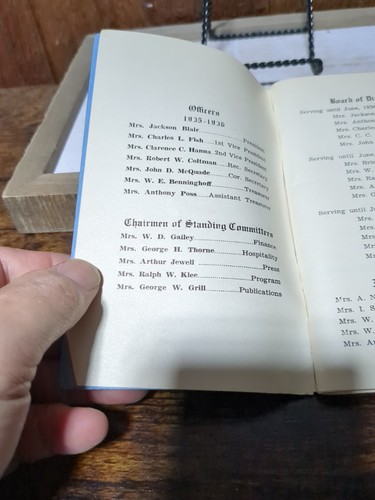 Officers
1935-1936
Mrs. Jackson Blair..........President
Mrs. Charles L. Fish....1st Vice President
Mrs. Clarence C. Hamma 2nd Vice President
Mrs. Robert W. Coltman....Rec. Secretary
Mrs. John D. McQuade....Cor. Secretary
Mrs. W. E. Benninghoff..........Treasurer
Mrs. Anthony Poss....Assistant Treasurer
Chairmen of Standing Committees
Mrs. W. D. Gailey..........Finance
Mrs. George H. Thorne..........Hospitality
Mrs. Arthur Jewell..........Press
Mrs. Ralph W. Klee..........Program
Mrs. George W. Grill..........Publications
Board of
Serving until June,
Mrs. Jackson
Mrs. Anthony
Mrs. Charles
Mrs. C. C.
Mrs. John
Serving until June
Mrs.
Mrs. W.
Mrs.
Mrs. A.
Mrs. G.
Serving until
Mrs.
Mrs.
Mrs.
Mrs.
Mrs. A. N
Mrs. I. S
Mrs. W.
Mrs. W.
Mrs.